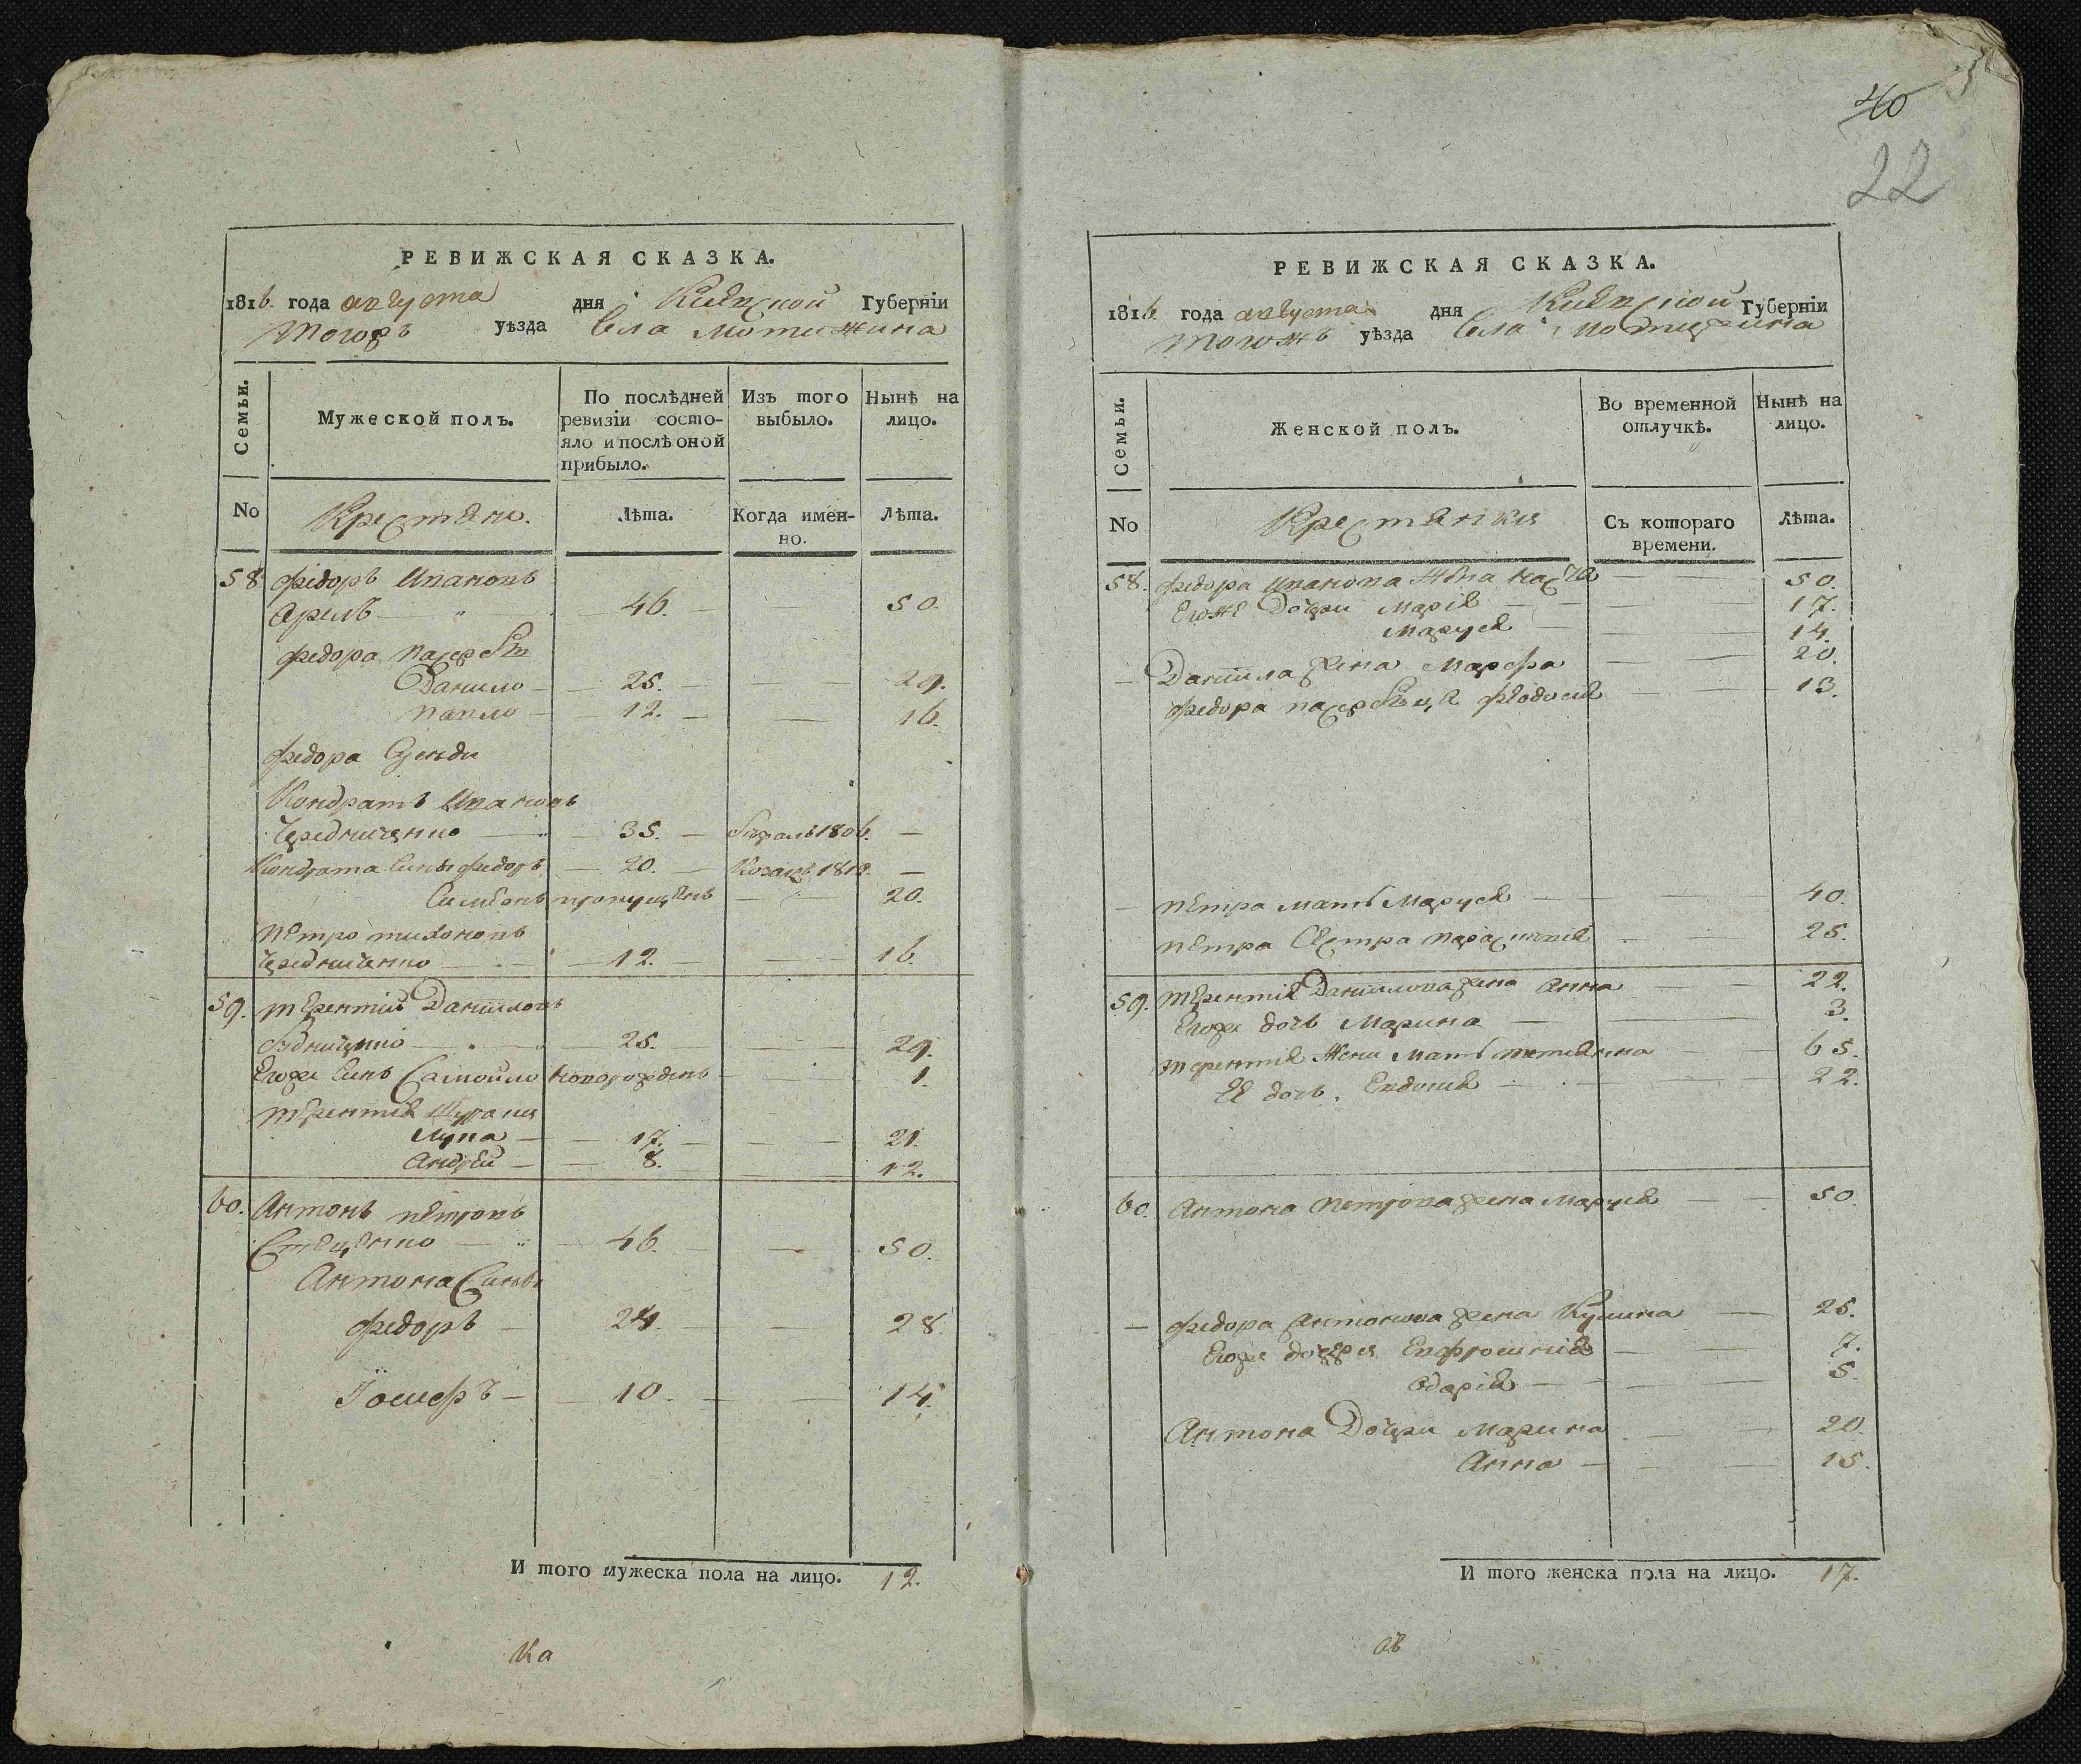 РЕВИЖСКАЯ СКАЗКА.
1816. года августа дня Кіевской Губерніи
тогожъ уѣзда Села Мотижина
Семьи.
Мужеской полъ.
По послѣдней ревизіи состо-
яло и послѣ оной
прибыло.
Изъ того
выбыло.
Нынѣ на
лицо.
No
Крестяне.
Лѣта.
Когда имен-
но.
Лѣта.
58 Федоръ Ивановъ
46. 50.
Федора
Данило 25. 29.
Павло 12. 16.
Федора
Кондратъ Ивановъ
Чередниченко 35. 1806.
Кондрата Сины Федоръ 20.
Симеонъ пропущенъ 20.
Петро Тихоновъ
Чередниченко 12. 16.
59. Терентій Даниловъ
25. 29.
Егоже Синъ Самойло новорожденъ 1.
Терентія Шурания
Лука 17. 21.
Андрей 8. 12.
60. Антонъ Петровъ
Стеценко 46. 50.
Антона Сины
Федоръ 24. 28.
Іосифъ 10. 14.
И того мужеска пола на лицо. 12.
Ка
40
22
РЕВИЖСКАЯ СКАЗКА.
1816. года августа дня Кіевской Губерніи
тогожъ уѣзда Села Мотижина
Семьи.
Женской полъ.
Во временной
отлучкѣ.
Нынѣ на
лицо.
No
Крестянки
Съ котораго
времени.
Лѣта.
58. Федора Иванова Жена Настя 50.
Егоже Дочери Марія 17.
Маруся 14.
Данила жена Марфа 20.
Федора Феодосія 13.
Петра мать Маруся 40.
Петра Сестра Парасковія 25.
59. Терентія Данилова жена Анна 22.
Егоже дочь Марина 3.
Терентія Жени мать Тетяна 65.
Ея дочь Евдокия 22.
60. Антона Петрова жена Маруся 50.
Федора Антонова жена Кулина 25.
Егоже дочеря Евфросинія 7.
Одарія 5.
Антона Дочери Марина 20.
Анна 15.
И того женска пола на лицо. 17.